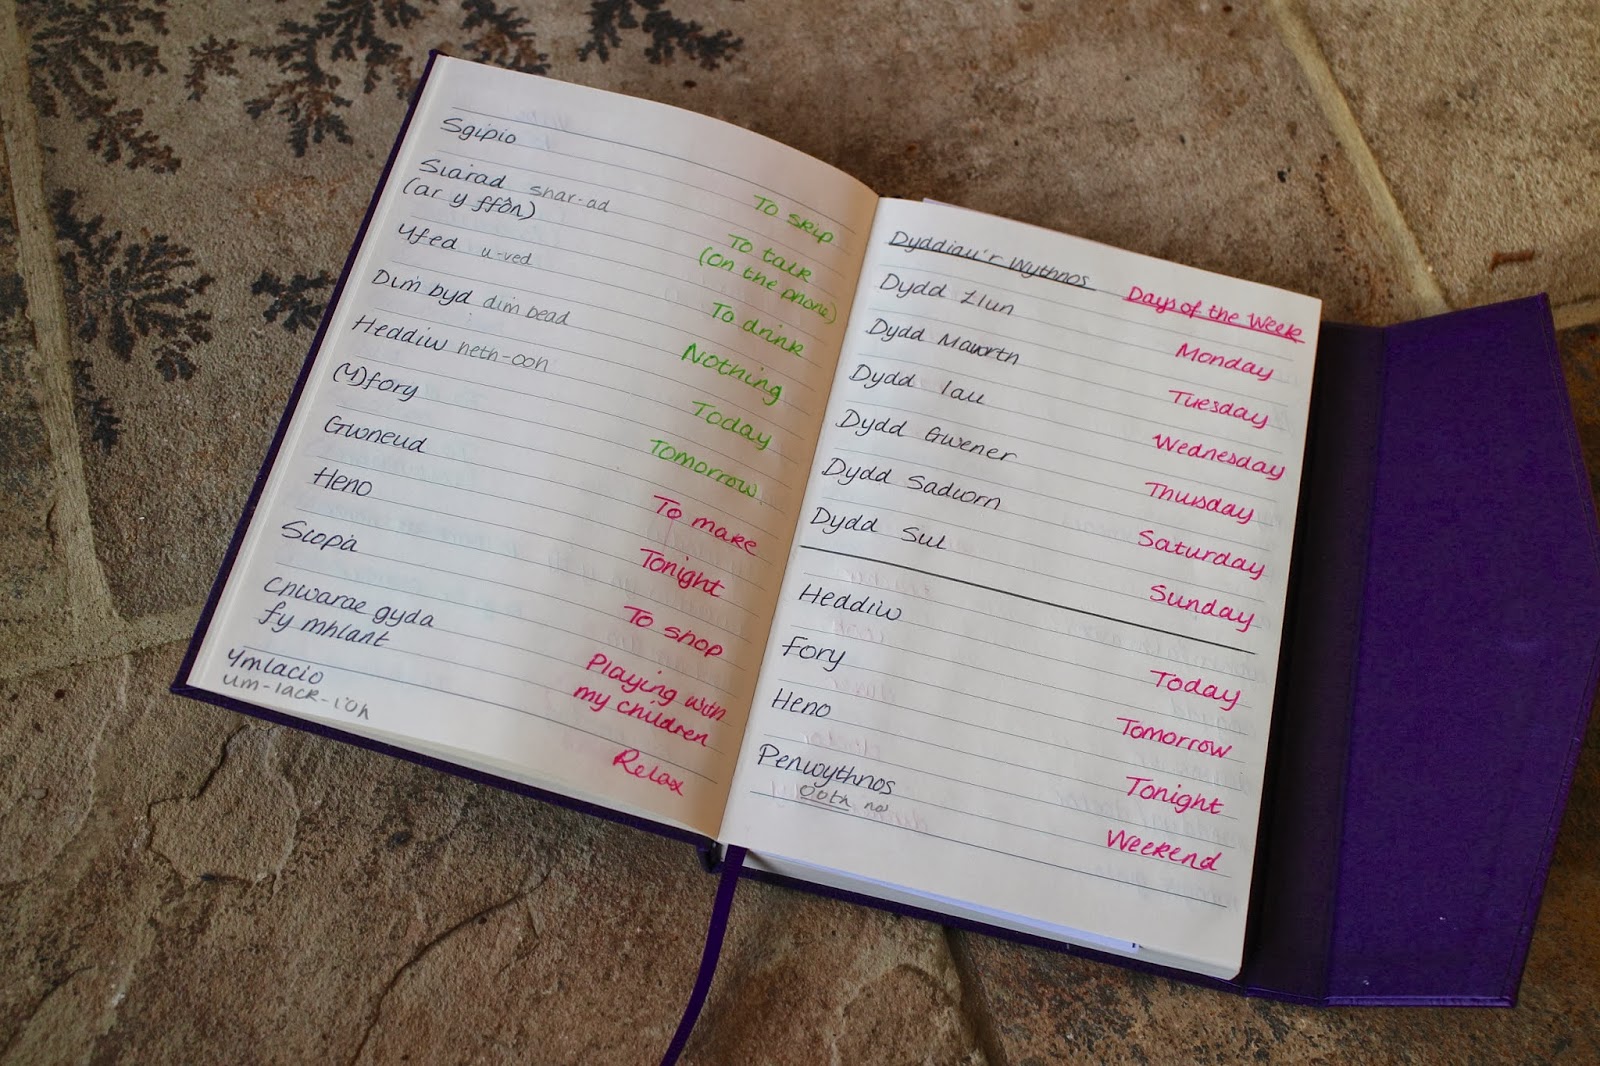 Sgipio To skip
Siarad shar-ad To talk
(ar y ffôn) (on the phone)
Yfed u-ved To drink
Dim byd dim bead Nothing
Heddiw heth-ooh Today
(Y)fory Tomorrow
Gwneud To make
Heno Tonight
Siopa To shop
Chwarae gyda Playing with
fy mhlant my children
Ymlacio Relax
um-lack-ioh
Dyddiau'r Wythnos Days of the Week
Dydd Llun Monday
Dydd Mawrth Tuesday
Dydd Iau Wednesday
Dydd Gwener Thursday
Dydd Sadwrn Saturday
Dydd Sul Sunday
Heddiw Today
Fory Tomorrow
Heno Tonight
Penwythnos Weekend
ooth no